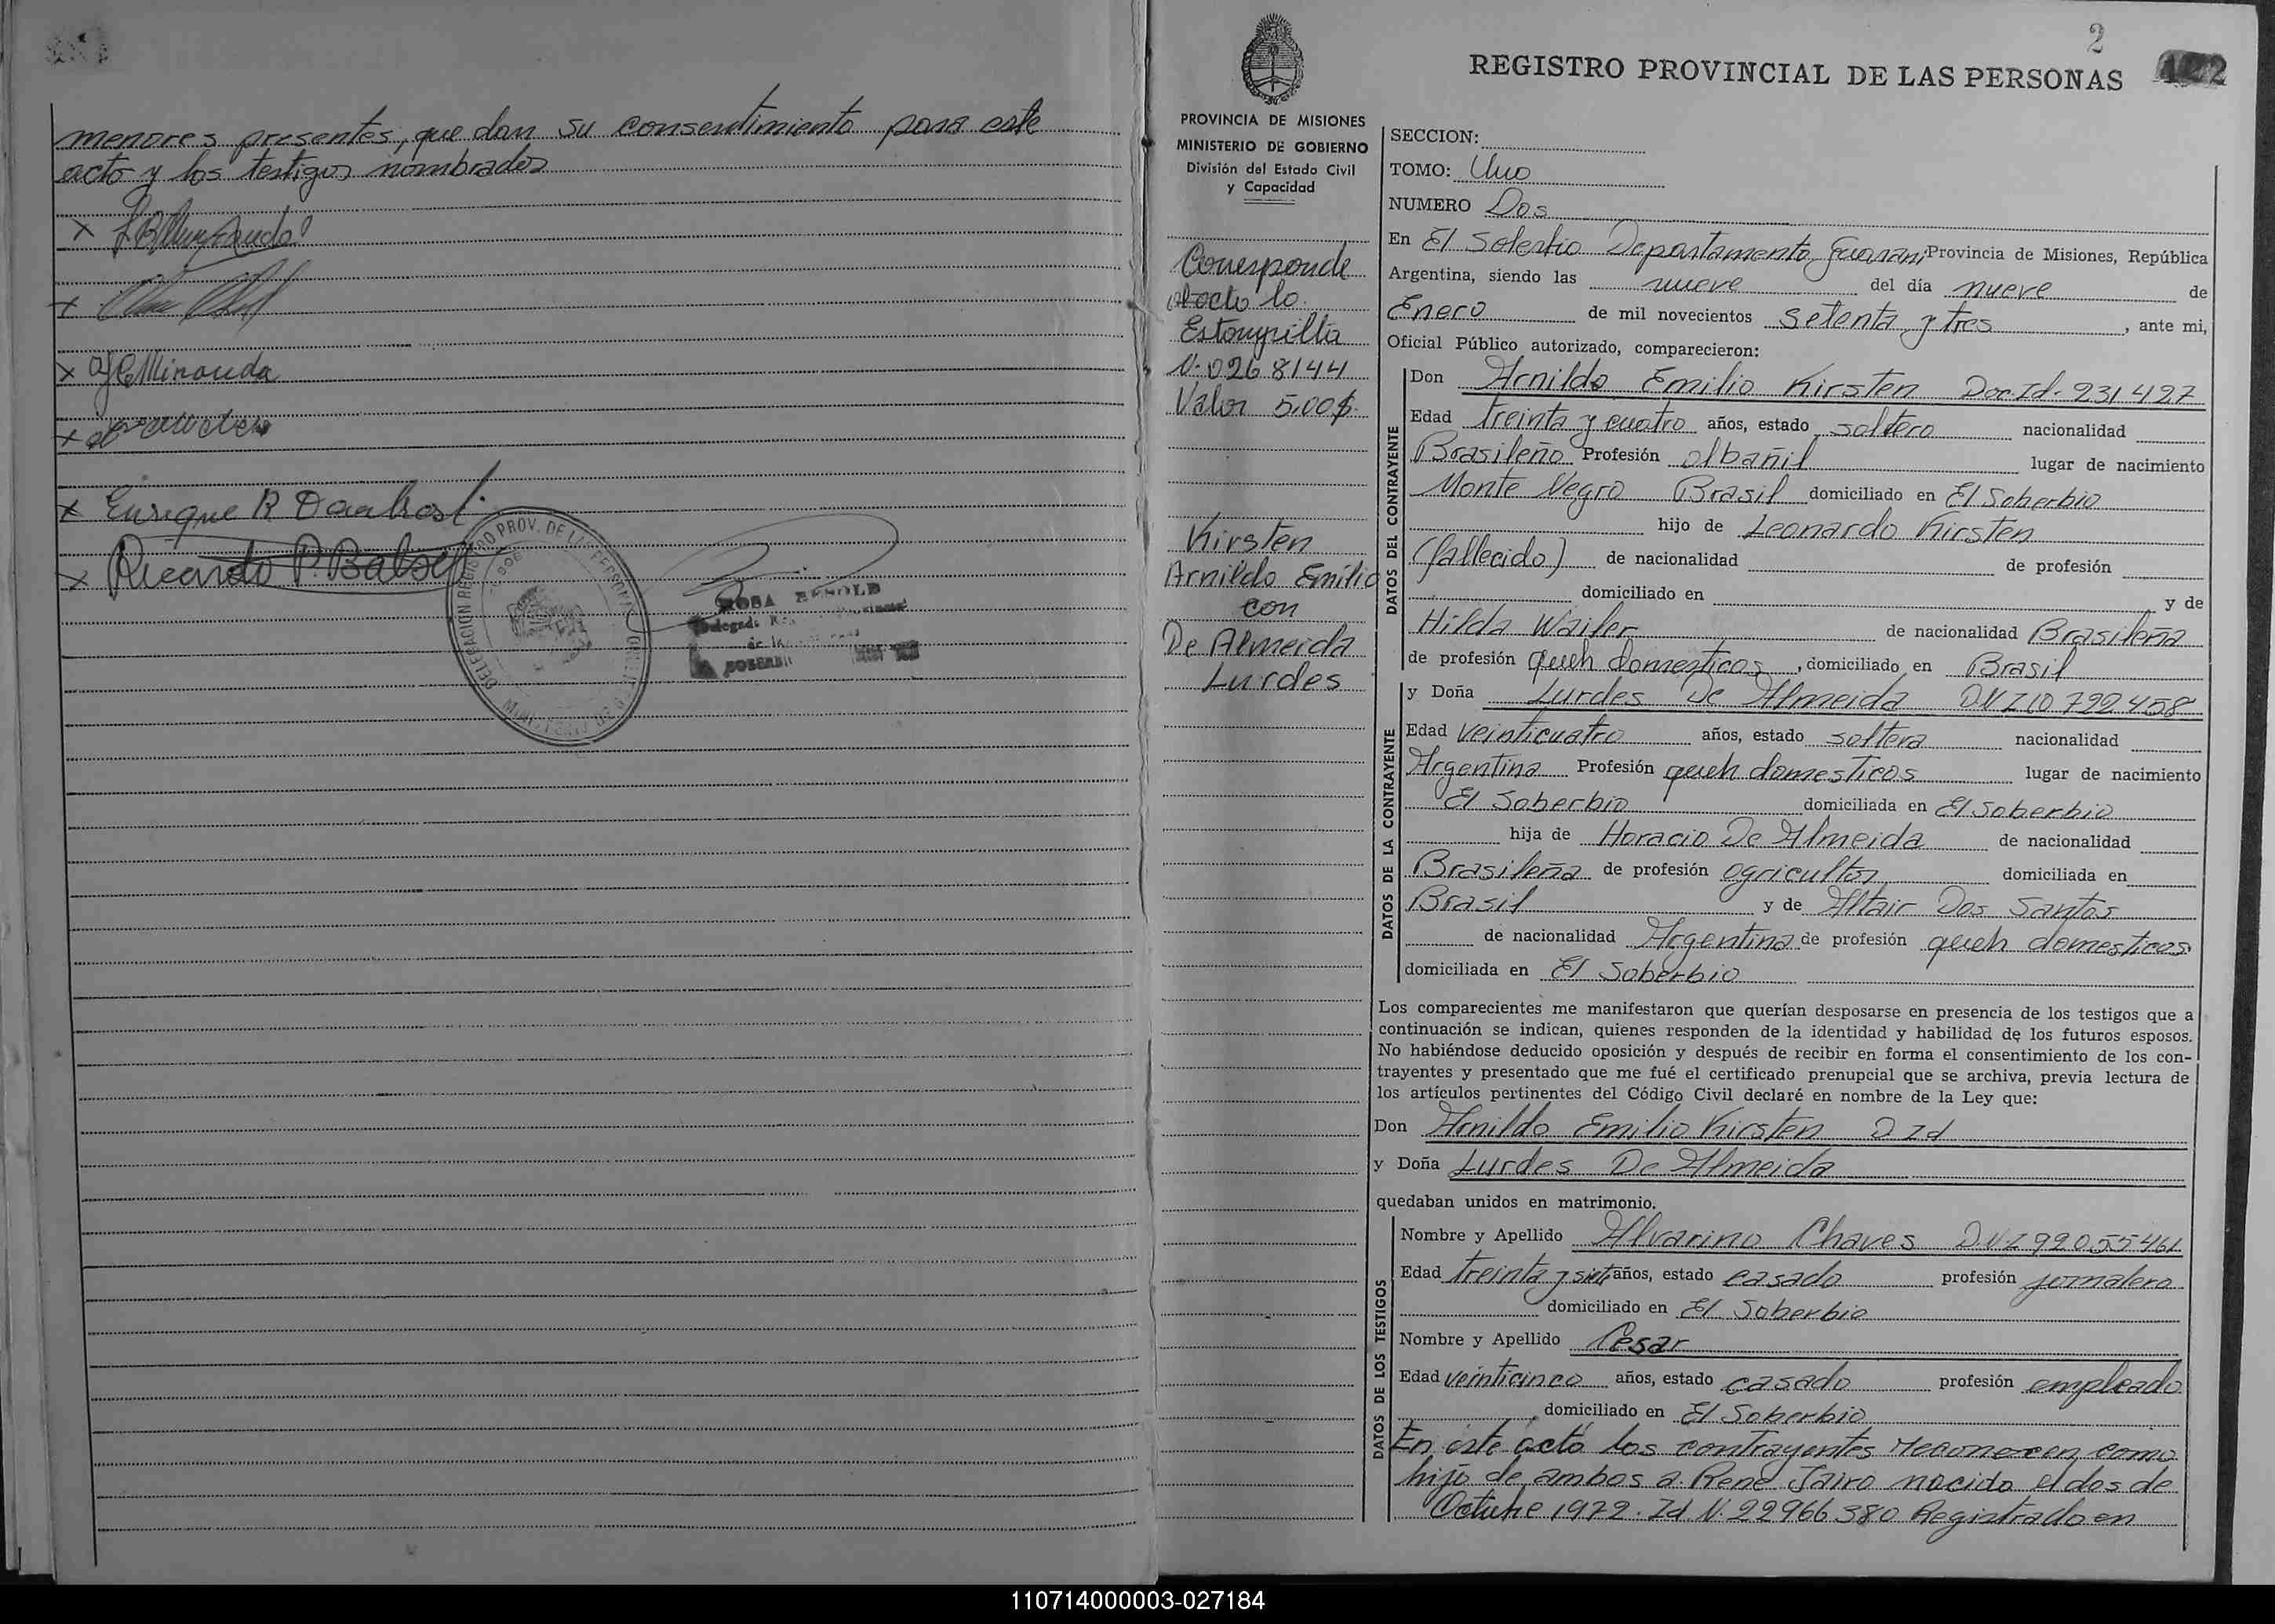 menores presentes, que dan su consentimiento para este
acto y los testigos nombrados
x
x
x Miranda
x
x Enrique R
x Ricardo P.
ROSA
2
122
REGISTRO PROVINCIAL DE LAS PERSONAS
PROVINCIA DE MISIONES
MINISTERIO DE GOBIERNO
División del Estado Civil
y Capacidad
Corresponde
al acto la
Estampilla
N. 0268144
Valor 5,00$
Kirsten
Arnildo Emilio
con
De Almeida
Lurdes
SECCION:
TOMO: Uno
NUMERO Dos
En El Soberbio Departamento Guarani Provincia de Misiones, República
Argentina, siendo las nueve del día nueve de
Enero de mil novecientos setenta y tres, ante mi,
Oficial Público autorizado, comparecieron:
DATOS DEL CONTRAYENTE
Don Arnildo Emilio Kirsten Doc. Id. 231427
Edad treinta y cuatro años, estado soltero nacionalidad
Brasileño Profesión albañil lugar de nacimiento
Monte Negro Brasil domiciliado en El Soberbio
hijo de Leonardo Kirsten
(fallecido) de nacionalidad de profesión
domiciliado en y de
Hilda de nacionalidad Brasileña
de profesión queh domesticos, domiciliado en Brasil
DATOS DE LA CONTRAYENTE
y Doña Lurdes De Almeida DNI 10 722 458
Edad veinticuatro años, estado soltera nacionalidad
Argentina Profesión queh domesticos lugar de nacimiento
El Soberbio domiciliada en El Soberbio
hija de Horacio De Almeida de nacionalidad
Brasileña de profesión agricultor domiciliada en
Brasil y de Altair Dos Santos
de nacionalidad Argentina de profesión queh domesticos
domiciliada en El Soberbio
Los comparecientes me manifestaron que querían desposarse en presencia de los testigos que a
continuación se indican, quienes responden de la identidad y habilidad de los futuros esposos.
No habiéndose deducido oposición y después de recibir en forma el consentimiento de los con-
trayentes y presentado que me fué el certificado prenupcial que se archiva, previa lectura de
los artículos pertinentes del Código Civil declaré en nombre de la Ley que:
Don Arnildo Emilio Kirsten D Id
y Doña Lurdes De Almeida
quedaban unidos en matrimonio.
DATOS DE LOS TESTIGOS
Nombre y Apellido Alvarino Chaves D.N.I 92055461
Edad treinta y siete años, estado casado profesión jornalero
domiciliado en El Soberbio
Nombre y Apellido Cesar
Edad veinticinco años, estado casado profesión empleado
domiciliado en El Soberbio
En este acto los contrayentes reconocen como
hijo de ambos a Rene Jairo nacido el dos de
Octubre 1972. Id N. 22966380 Registrado en
110714000003-027184